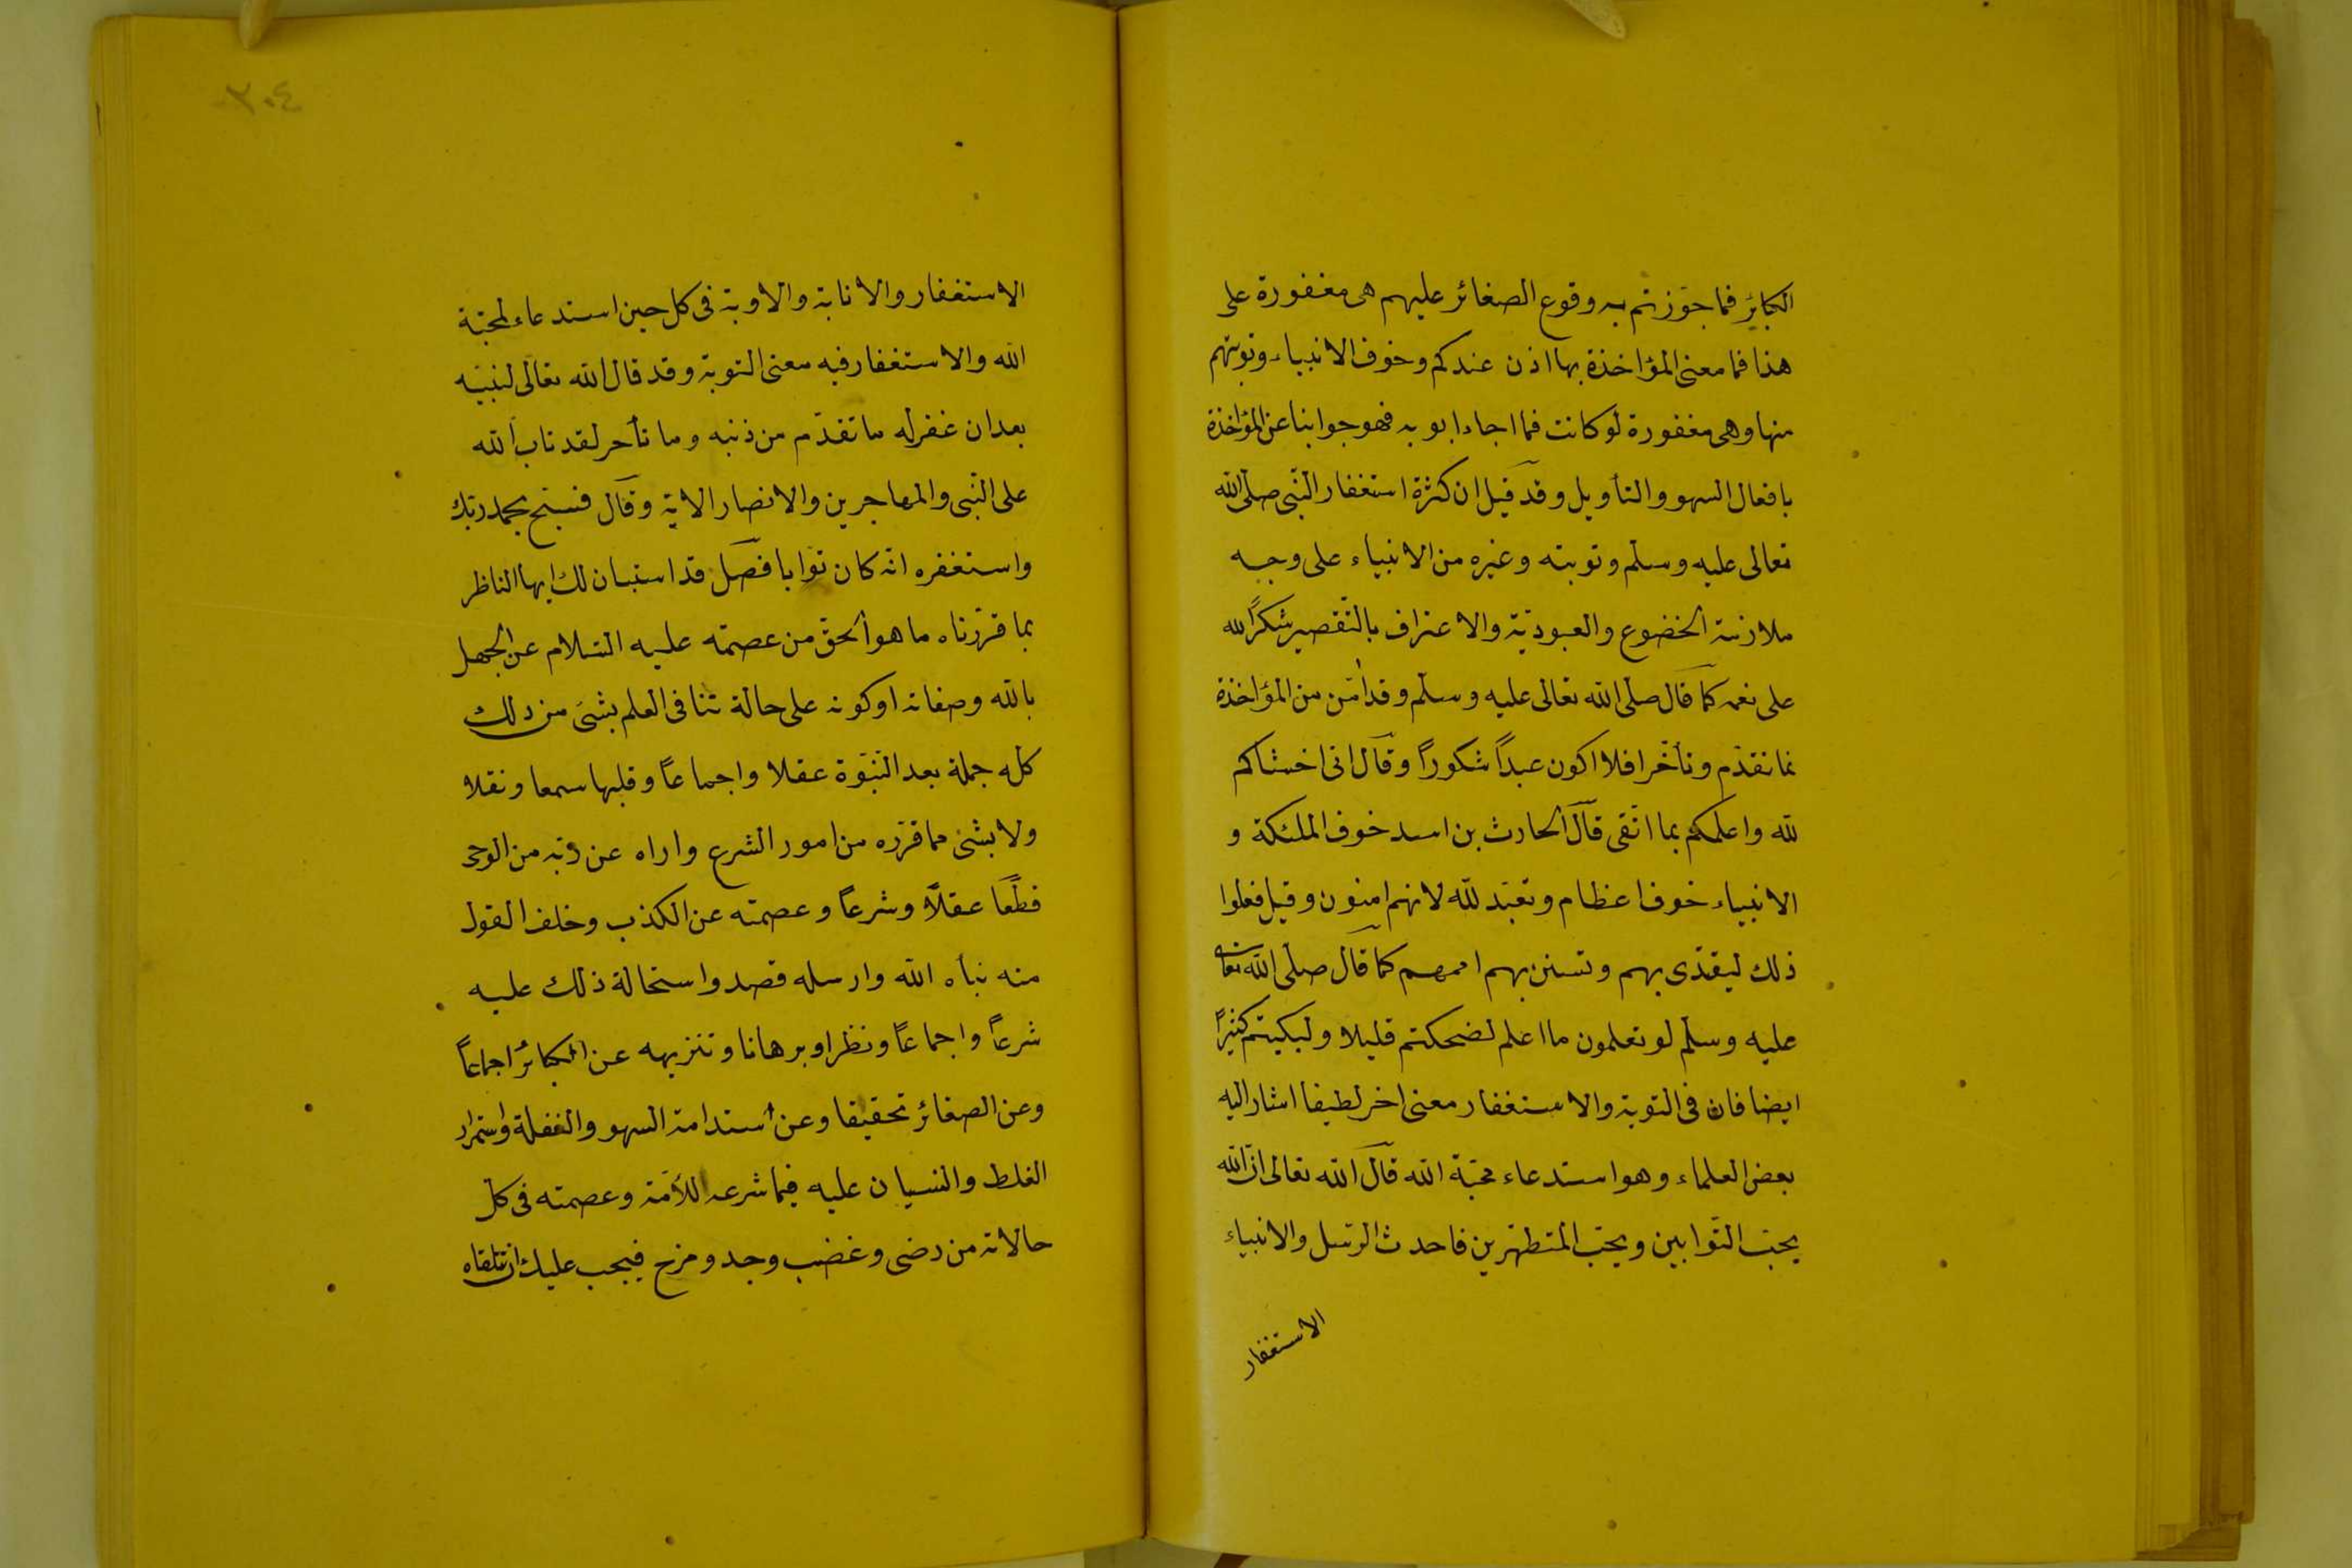 الكبائر فما جوّزتم به وقوع الصغائر عليهم هى مغفورة على
هذا فما معنى المؤاخذة بها اذن عندكم وخوف الانبياء وتوبتهم
منها وهى مغفورة لو كانت فما اجاءابو به فهو جوابنا عن المؤاخذة
بافعال السهو والتأويل وقد قيل ان كثرة استغفار النّبى صلّى اللّه
تعالى عليه وسلّم وتوبته وغيره من الانبياء على وجه
ملازمة الخضوع والعبوديّة والاعتراف بالتّقصير شكرًا لله
على نعمه كما قال صلّى اللّه تعالى عليه وسلّم وقد امّن من المؤاخذة
بما تقدّم وتأخّر افلا اكون عبداً شكوراً وقال انى اخشاكم
للّه واعلمكم بما اتّقى قال الحارث بن اسد خوف الملئكة و
الانبياء خوف اعظام وتعبّد للّه لانهم امنون وقيل فعلوا
ذلك ليقتدى بهم وتستن بهم اممهم كما قال صلّى اللّه تعالى
عليه وسلّم لو تعلمون ما اعلم لضحكتم قليلا ولبكيتم كثيرًا
ايضا فان فى التوبة والاستغفار معنى اخر لطيفا اشار اليه
بعض العلماء وهو استدعاء محبّة اللّه قال اللّه تعالى انّ اللّه
يحبّ التّوابين ويحبّ المتطهّرين فاحدث الرّسل والانبياء
الاستغفار
٣٠٤
الاستغفار والانابة والاوبة فى كل حين استدعاء لمحبّة
اللّه والاستغفار فيه معنى التوبة وقد قال اللّه تعالى لنبيّه
بعد ان غفر له ما تقدّم من ذنبه وما تأخر لقد تاب اللّه
على النّبى والمهاجرين والانصار الاية وقال فسبّح بحمد ربّك
واستغفره انّه كان توّابا فصل قد استبان لك ايها الناظر
بما قرّرناه ما هو الحقّ من عصمته عليه السّلام عن الجهل
باللّه وصفاته او كونه على حالة تنافى العلم بشئ من ذلك
كلّه جملة بعد النّبوّة عقلا واجماعاً وقبلها سمعا ونقلا
ولا بشئ مما قرّره من امور الشرع واراه عن ربّه من الوحى
قطعًا عقلًا وشرعاً وعصمته عن الكذب وخلف القول
منه نبأه اللّه وارسله قصد واستحالة ذلك عليه
شرعاً واجماعاً ونظرا وبرهانا وتنزيهه عن الكبائر اجماعاً
وعن الصغائر تحقيقا وعن استدامة السهو والغفلة واستمرار
الغلط والنسيان عليه فيما شرعه للأمّة وعصمته فى كلّ
حالاته من رضى وغضب وجد ومزح فيجب عليك ان تتلقاه